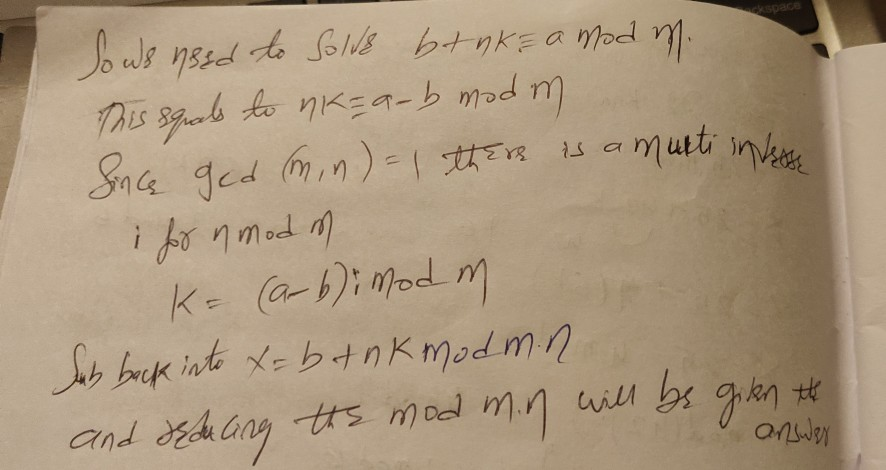 So we need to solve b+nk≡a mod m.
This equals to nk≡a-b mod m
Since gcd (m,n)=1 there is a multi inverse
i for n mod m
k= (a-b)i mod m
Sub back into x=b+nk mod m.n
and reducing the mod m.n will be given the
answer